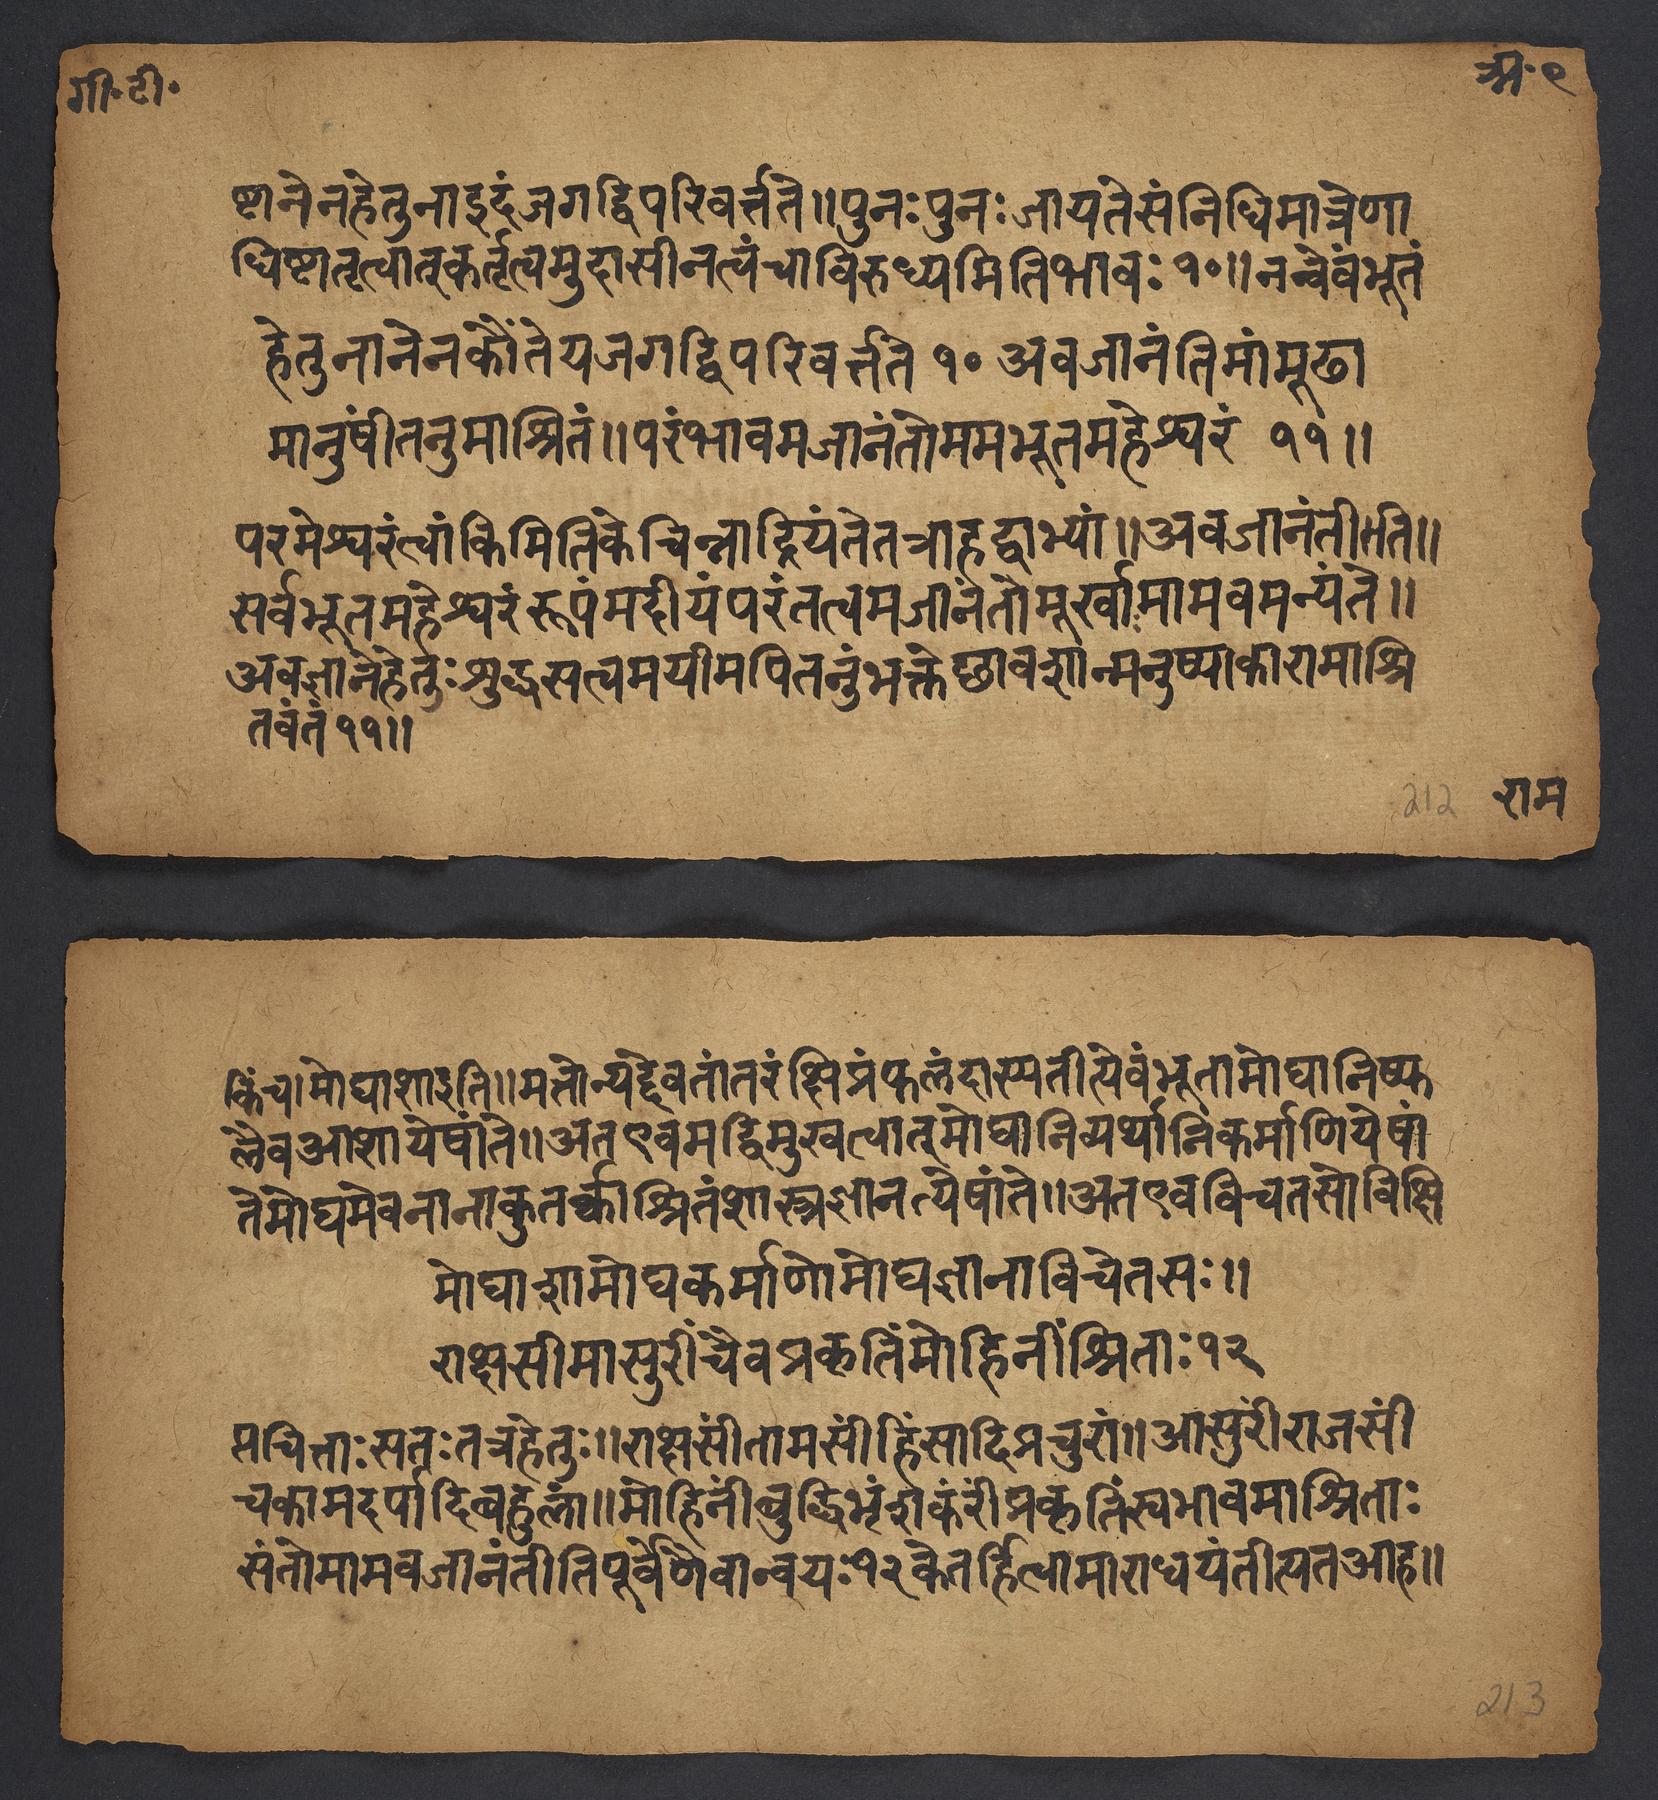 गी॰टी॰
अ॰९
ष्टानेनहेतुनाइदंजगद्विपरिवर्त्तते॥पुनःपुनःजायतेसंनिधिमात्रेणा
धिष्टातृत्वात्कर्तृत्वमुदासीनत्वंचाविरुध्यमितिभावः१०॥नन्वेवंभूतं
हेतुनानेनकौंतेयजगद्विपरिवर्त्तते १० अवजानंतिमांमूढा
मानुषींतनुमाश्रितं॥परंभावमजानंतोममभूतमहेश्वरं ११॥
परमेश्वरंत्वांकिमितिकेचिन्नाद्रियंतेतत्राहद्वाभ्यां॥अवजानंतीतति॥
सर्वभूतमहेश्वरंरूपंमदीयंपरंतत्वमजानंतोमूर्खामामवमन्यंते॥
अवज्ञानेहेतुःशुद्धसत्वमयीमपितनुंभक्तेछावशान्मनुष्याकारामाश्रि
तवंतं११॥
212
राम
किंच।मोघाशाइति॥मत्तोन्यद्देवतांतरंक्षिप्रंफलंदास्यतीत्येवंभूतामोघानिष्फ
लैवआशायेषांते॥अतएवमद्विमुखत्वात्मोघानिव्यर्थानिकर्माणियेषां
तेमोघमेवनानाकुतर्काश्रितंशास्त्रज्ञानत्येषांते॥अतएवविचेतसोविक्षि
मोघाशामोघकर्माणोमोघज्ञानाविचेतसः॥
राक्षसीमासुरींचैवप्रकृतिंमोहिनींश्रिताः१२
प्तचित्ताःसतःतत्रहेतुः॥राक्षसींतामसींहिंसादिप्रचुरां॥आसुरींराजसीं
चकामदर्पादिबहुलां॥मोहिनींबुद्धिभ्रंशकरींप्रकृतिंस्वभावमाश्रिताः
संतोमामवजानंतीतिपूर्वेणैवान्वयः१२केतर्हित्वामाराधयंतीत्यतआह॥
213